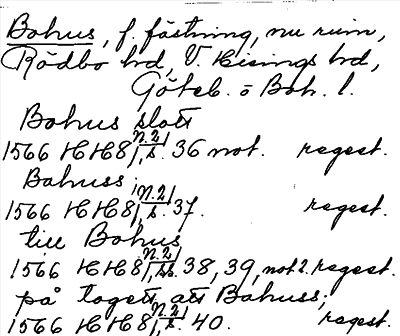 Bohus, f. fästning, nu ruin,
Rödbo sn, V. Hisings hd,
Göteb. o Boh. l.
Bohus slott
1566 HH8 n.2/1, s. 36 not. regest.
Bahuss;
1566 HH8 n.2/1, s. 37. regest.
till Bohus
1566 HH8 n.2/1, ss. 38, 39, not 2. regest.
på togett att Bahuss;
1566 HH8 n.2/1, s. 40. regest.